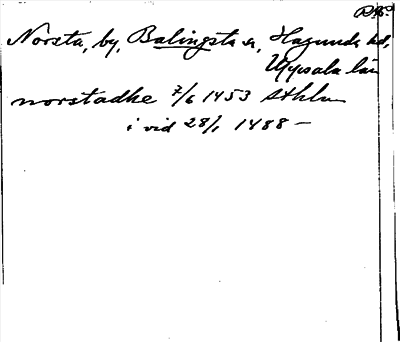 Norsta, by, Balingsta sn, Hagunda hd,
Uppsala län
norstadhe 7/6 1453 Sthlm
i vid 28/1 1488 —